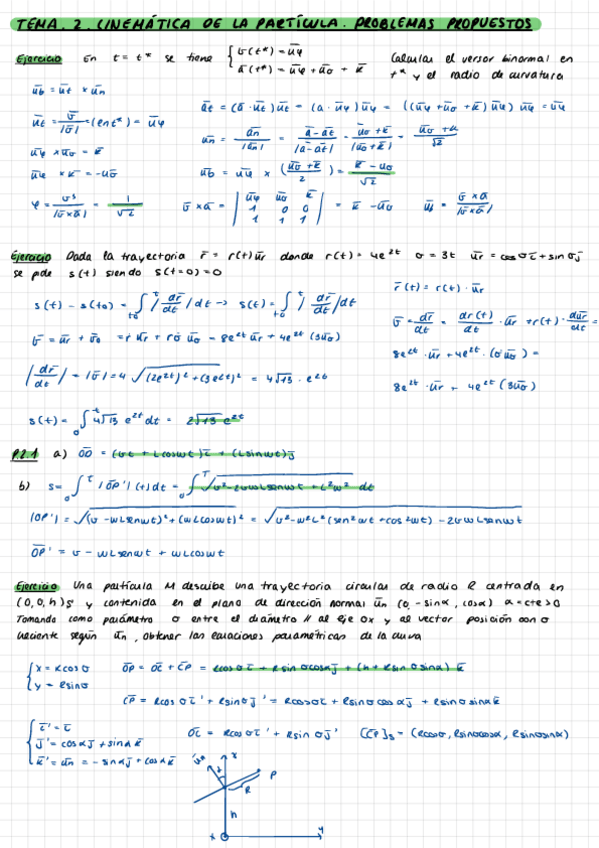 TEMA. 2. CINEMÁTICA DE LA PARTÍCULA. PROBLEMAS PROPUESTOS
Ejercicio En t = t* se tiene { v̄(t*) = ūφ
ā(t*) = ūφ + ūθ + k̄
Calcular el versor binormal en t* y el radio de curvatura
ūb = ūt × ūn
ūt = v̄/|v̄| = (en t*) = ūφ
āt = (ā · ūt) ūt = (a · ūφ) ūφ = ((ūφ + ūθ + k̄) ūφ) ūφ = ūφ
ūφ × ūθ = k̄
ūφ × k̄ = -ūθ
ūb = ūφ × (ūθ + k̄ / 2) = k̄ - ūθ / √2
v̄ × ā = | ūφ ūθ k̄ |
| 1 0 0 |
| 1 1 1 | = k̄ - ūθ
Ejercicio Dada la trayectoria r̄ = r(t) ūr donde r(t) = 4e^2t θ = 3t ūr = cosθ ī + sinθ j̄
se pide s(t) siendo s(t=0) = 0
r̄(t) = r(t) · ūr
s(t) - s(t0) = ∫ |dr̄/dt| dt -> s(t) = ∫ |dr̄/dt| dt
v̄ = dr̄/dt = dr(t)/dt · ūr + r(t) · dūr/dt =
8e^2t · ūr + 4e^2t · (θ̇ ūθ) =
8e^2t · ūr + 4e^2t (3ūθ)
|dr̄/dt| = |v̄| = 4 √((2e^2t)^2 + (3e^2t)^2) = 4√13 · e^2t
s(t) = ∫ 4√13 e^2t dt = 2√13 e^2t
P.2.1 a) ŌD = (vt + L cosωt) ī + (L sinωt) j̄
b) s = ∫ |ŌP'| (t) dt = ∫ √(v² - 2vωL senωt + L²ω²) dt
|OP'| = √((v - ωL senωt)² + (ωL cosωt)²) = √(v² - ω²L² (sen²ωt + cos²ωt) - 2vωL senωt
ŌP' = v - ωL senωt + ωL cosωt
Ejercicio Una partícula M describe una trayectoria circular de radio R centrada en
(0,0,h)s y contenida en el plano de dirección normal ūn (0, -sinα, cosα) α = cte > 0
Tomando como parámetro θ entre el diámetro // al eje Ox y al vector posición con θ
creciente según ūn, obtener las ecuaciones paramétricas de la curva
{ x = R cosθ
y = R sinθ
ŌP = ŌC + C̄P = R cosθ ī + R sinθ cosα j̄ + (h + R sinθ sinα) k̄
C̄P = R cosθ ī' + R sinθ j̄' = R cosθ ī + R sinθ cosα j̄ + R sinθ sinα k̄
{ ī' = ī
j̄' = cosα j̄ + sinα k̄
k̄' = ūn = -sinα j̄ + cosα k̄
ŌC = R cosθ ī' + R sinθ j̄'
[C̄P]s = (R cosθ, R sinθ cosα, R sinθ sinα)
P
R
h
x
y